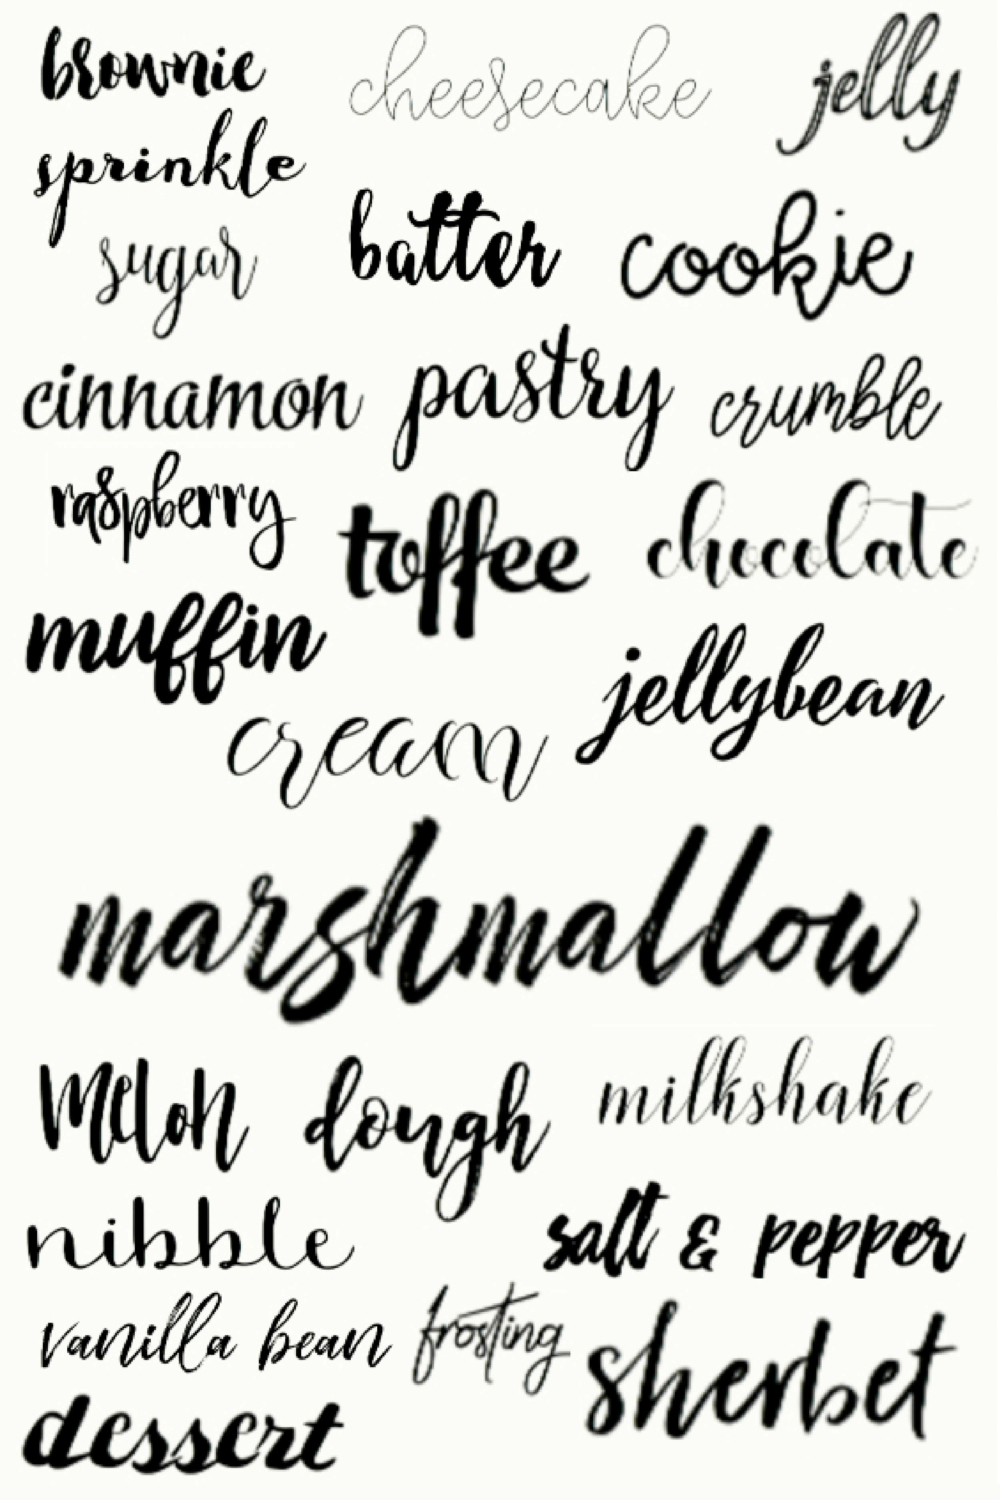 brownie cheesecake jelly
sprinkle
sugar batter cookie
cinnamon pastry crumble
raspberry toffee chocolate
muffin jellybean
cream
marshmallow
Melon dough milkshake
nibble salt & pepper
vanilla bean frosting sherbet
dessert